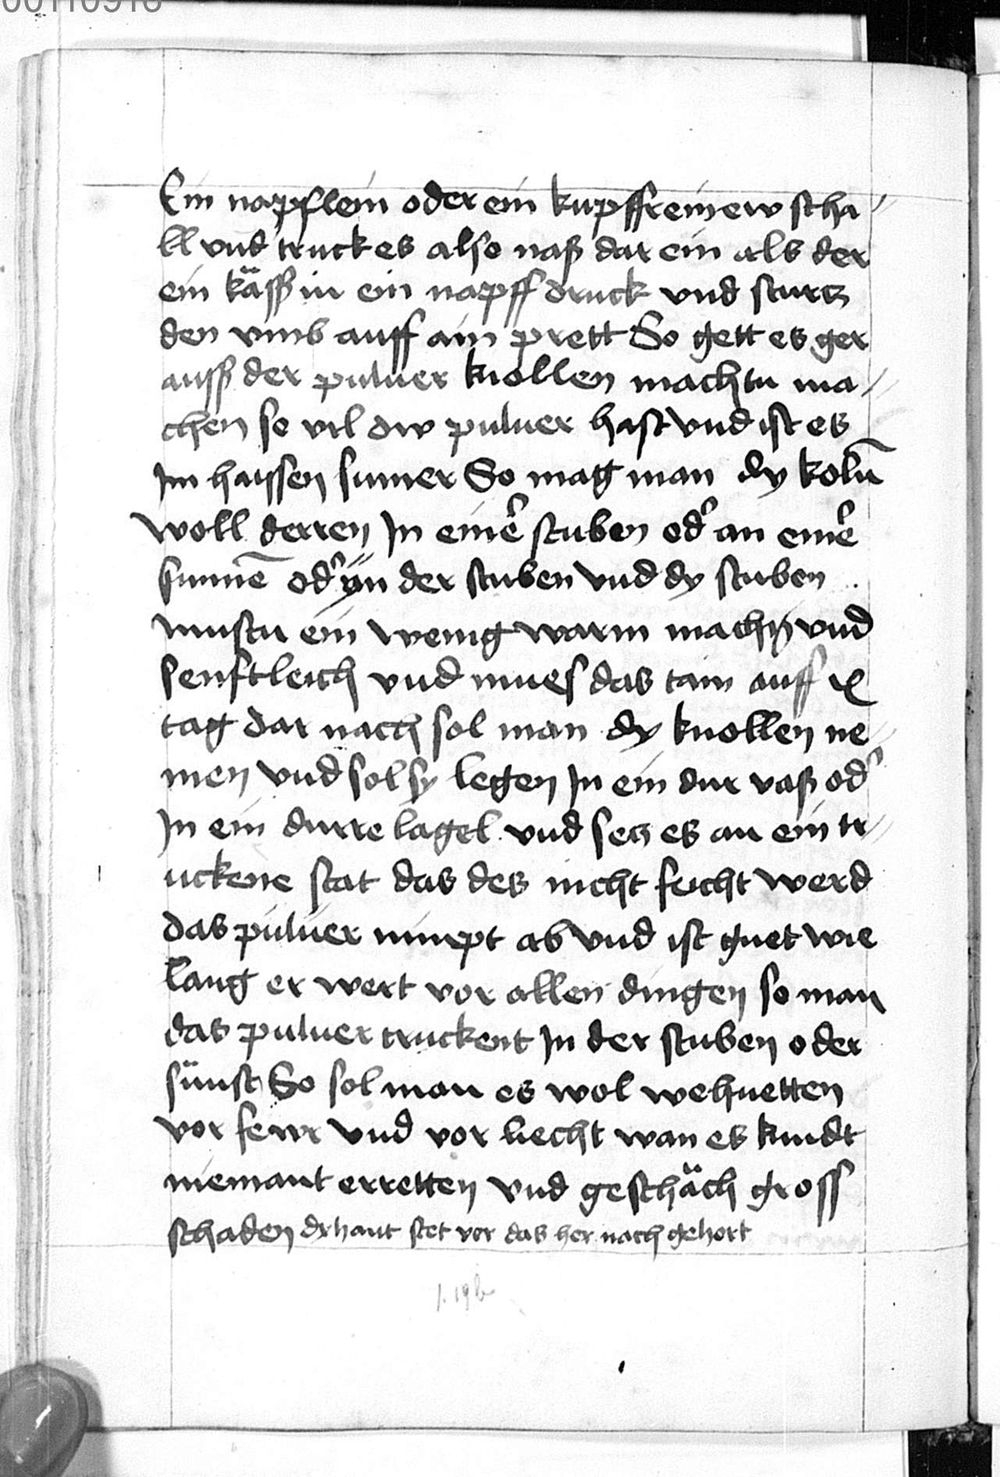 00110918
Ein napflein oder ein kupffreinew scha-
ll vnd truck es also naß dar ein als der
ein käß in ein napff druck vnd sturtz
den vmb auff ain prett So gett es her
auß der puluer knollen machtu ma-
chen so vil dw puluer hast vnd ist es
Im haissen sumer So mag man dy kolñ
woll derren In einer̄ stuben od' an einer̄
sunnē od' ÿn der stuben vnd dy stuben
mustu ein wenig warm machñ vnd
senftleich vnd mues das tain auff ix
tag dar nach sol man dy knollen ne-
men vnd sol sy legen In ein dur vaß od'
In ein durre lagel vnd setz es an ein tr-
uckene stat das des nicht feicht werd
das puluer nimpt ab vnd ist guet wie
lang er wert vor allen dingen so man
das puluer truckent In der stuben oder
sünst So sol man es wol wehuetten
vor fewr vnd vor liecht wan es kundt
niemant erretten vnd geschäch gross
schaden dy hant stet vor das her nach gehort
f. 19b